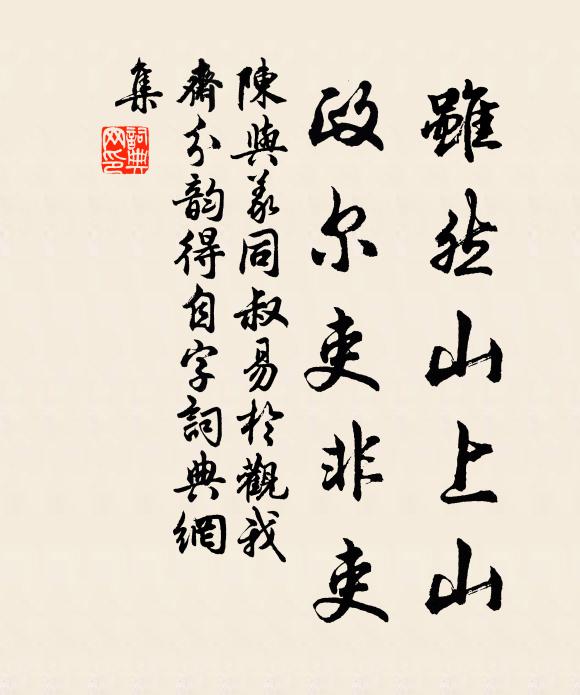 雖然山上山
政尔吏非吏
陳與義同叔易於觀我
齋分韵得自字詞典網
集
詞典网印